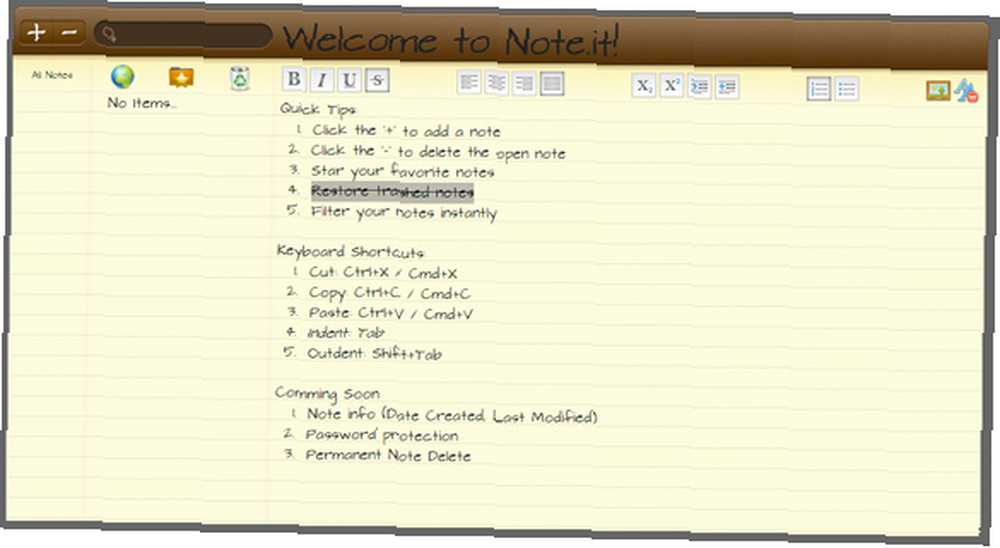 + - Welcome to Note.it!
All Notes B I U S X₂ X²
No Items...
Quick Tips:
1. Click the '+' to add a note
2. Click the '-' to delete the open note
3. Star your favorite notes
4. Restore trashed notes
5. Filter your notes instantly
Keyboard Shortcuts:
1. Cut: Ctrl+X / Cmd+X
2. Copy: Ctrl+C / Cmd+C
3. Paste: Ctrl+V / Cmd+V
4. Indent: Tab
5. Outdent: Shift+Tab
Comming Soon
1. Note info (Date Created, Last Modified)
2. Password protection
3. Permanent Note Delete